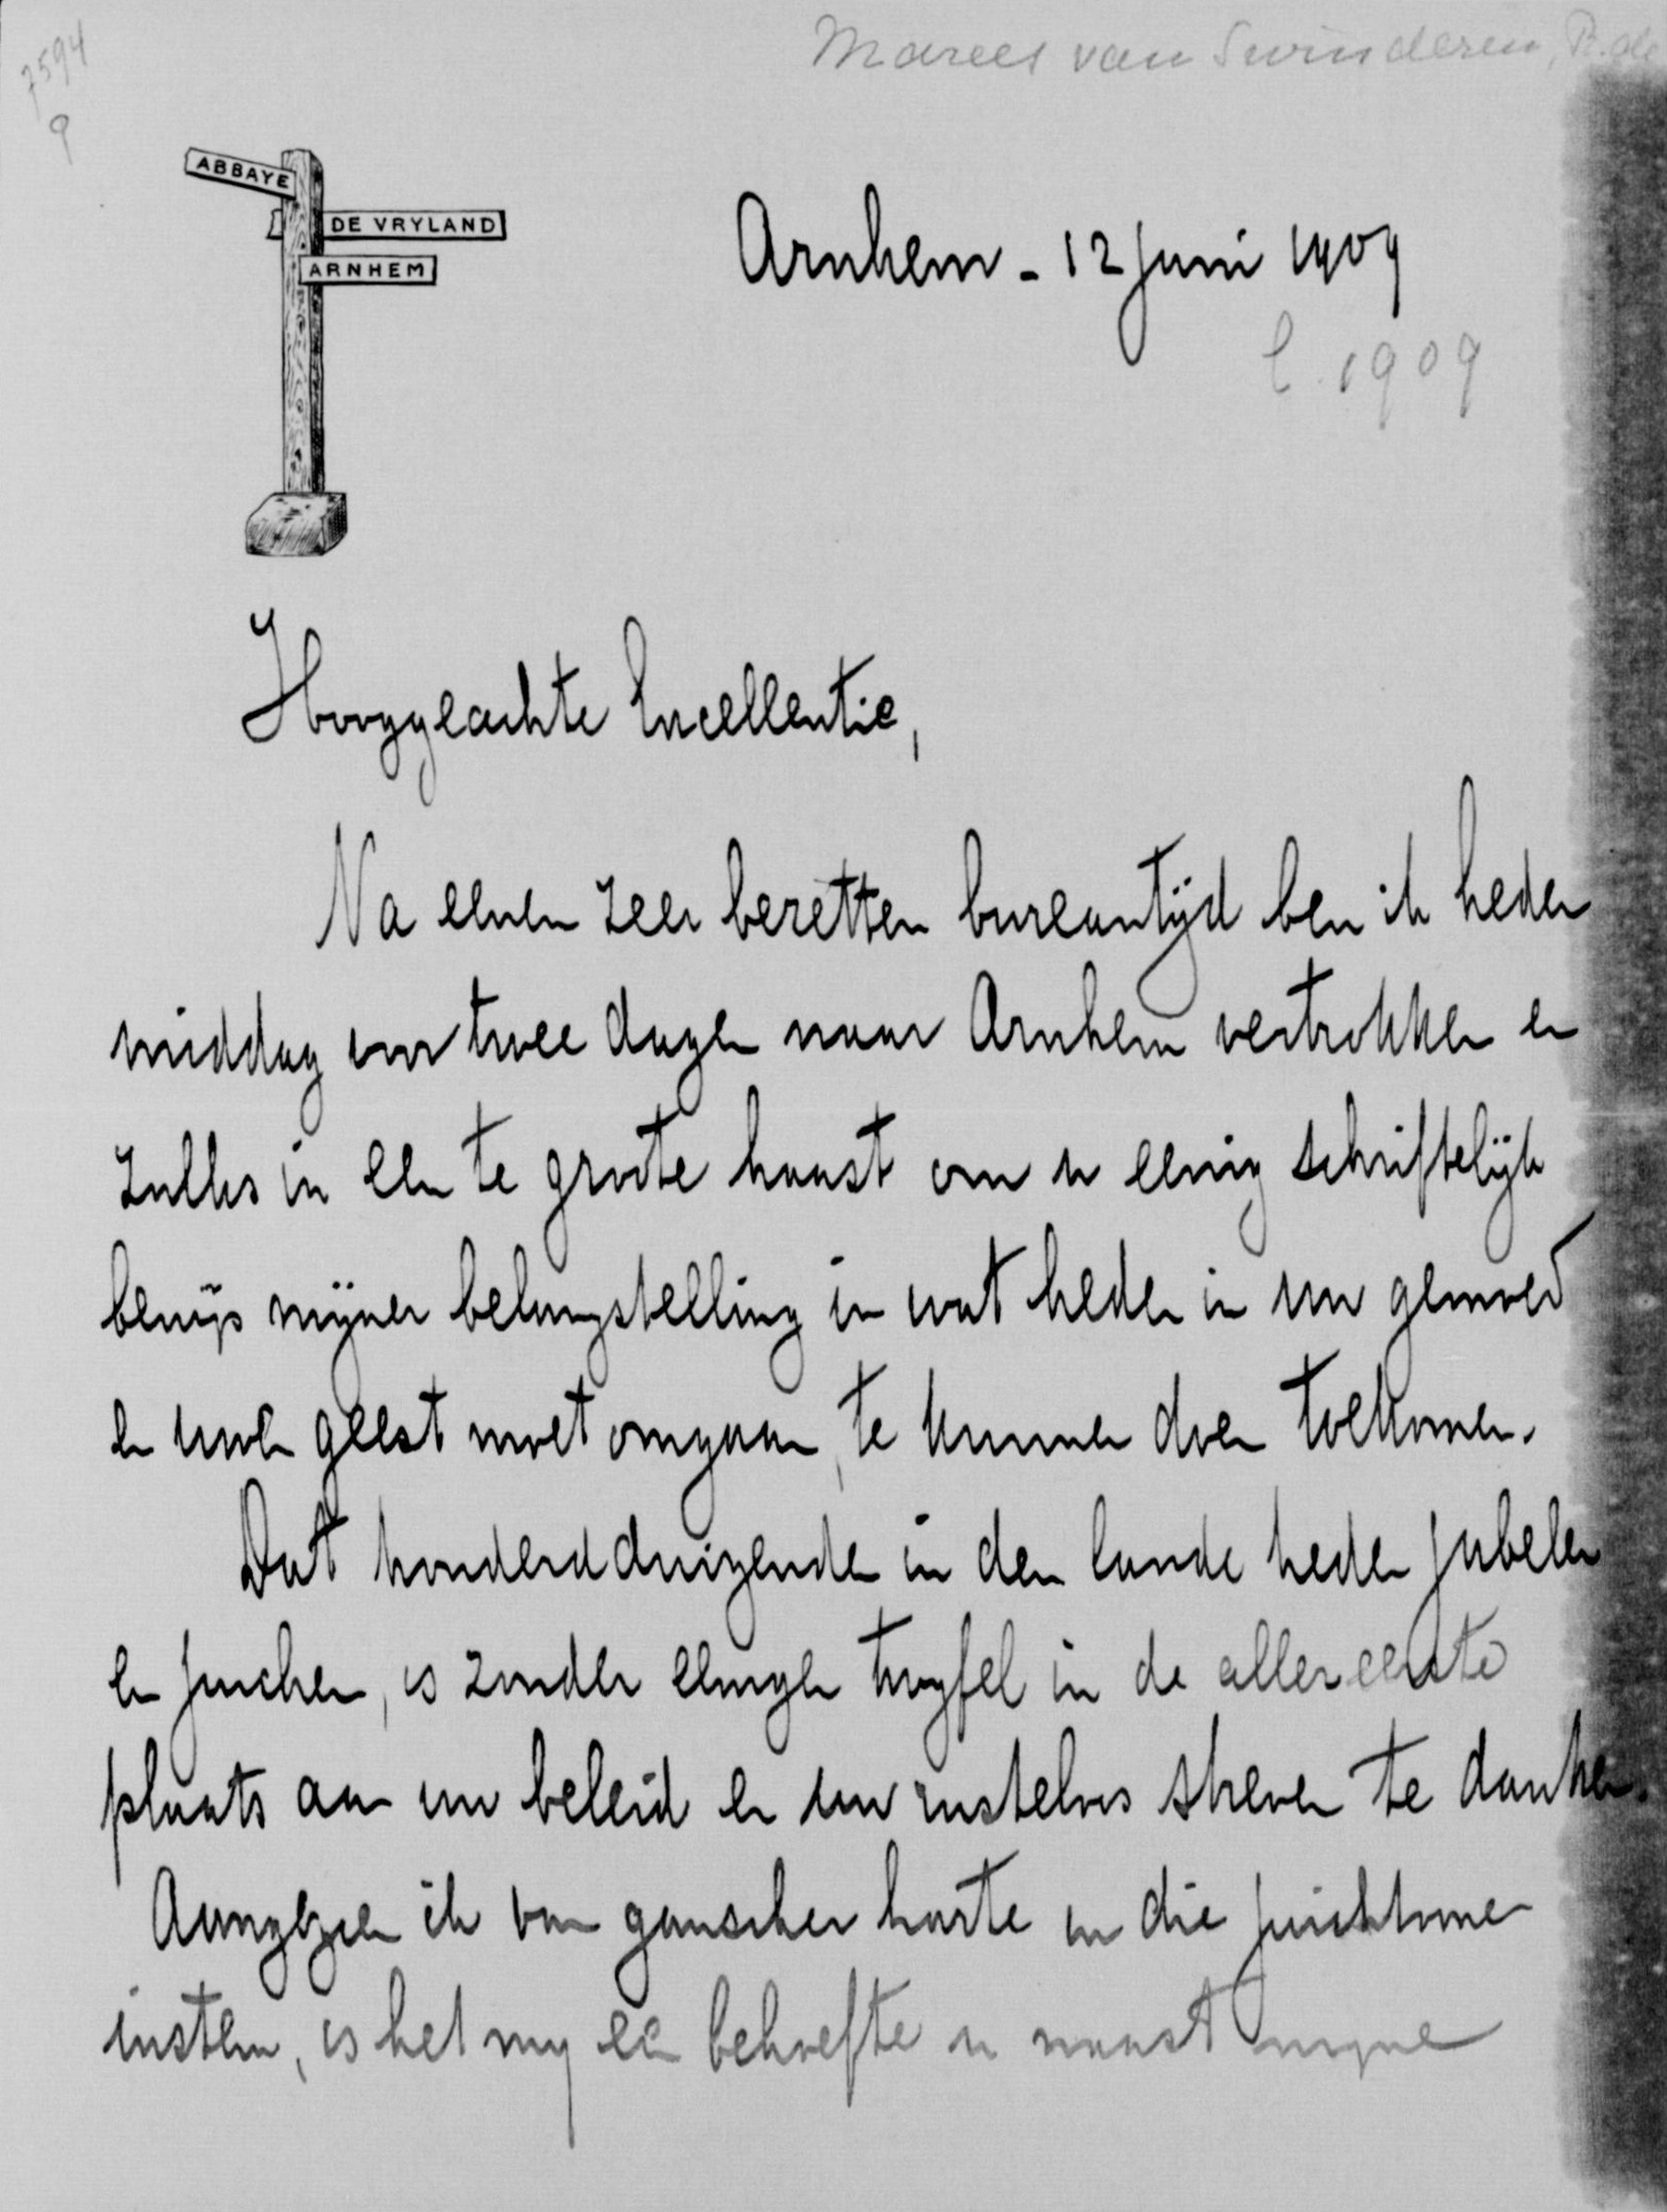 Marees van Swinderen, R. de
7594
9
ABBAYE
DE VRYLAND
ARNHEM
Arnhem - 12 Juni 1909
1909
Hooggeachte Excellentie,
Na eenen zeer bezetten bureautijd ben ik heden
middag voor twee dagen naar Arnhem vertrokken en
zulks in een te groote haast om u eenig schriftelijk
bewijs mijner belangstelling in wat heden in uw gemoed
en uwen geest moet omgaan, te kunnen doen toekomen.
Dat honderdduizenden in den lande heden jubelen
en juichen, is zonder eenigen twyfel in de allereerste
plaats aan uw beleid en uw rusteloos streven te danken.
Aangezien ik van ganscher harte in die juichtonen
instem, is het my een behoefte u naast myne